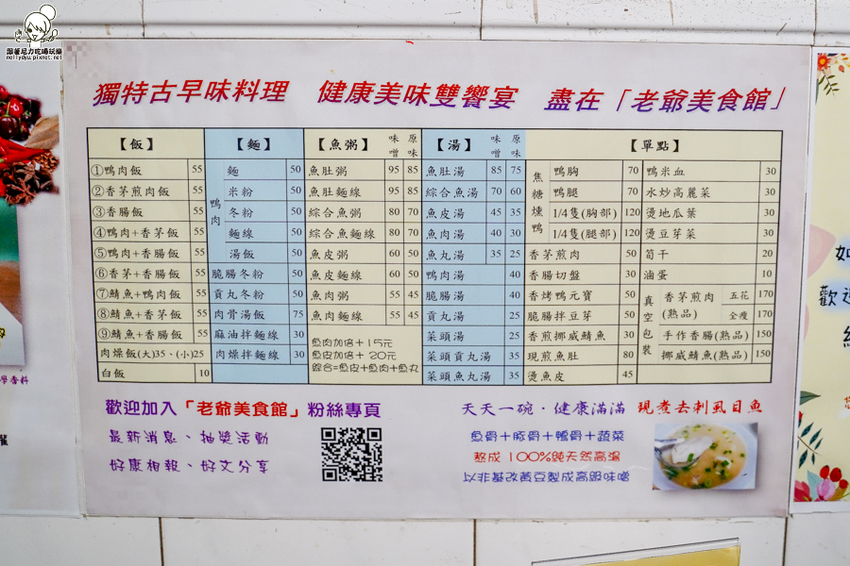 跟著尼力吃喝玩樂
nellydyu.pixnet.net
獨特古早味料理 健康美味雙饗宴 盡在「老爺美食館」
【飯】
①鴨肉飯 55
②香茅煎肉飯 55
③香腸飯 55
④鴨肉+香茅飯 55
⑤鴨肉+香腸飯 55
⑥香茅+香腸飯 55
⑦鯖魚+鴨肉飯 55
⑧鯖魚+香茅飯 55
⑨鯖魚+香腸飯 55
肉燥飯(大)35、(小)25
白飯 10
【麵】
鴨肉
麵 50
米粉 50
冬粉 50
麵線 50
湯飯 50
脆腸冬粉 50
貢丸冬粉 50
肉骨湯飯 75
麻油拌麵線 30
肉燥拌麵線 30
【魚粥】 味噌 原味
魚肚粥 95 85
魚肚麵線 95 85
綜合魚粥 80 70
綜合魚麵線 80 70
魚皮粥 60 50
魚皮麵線 60 50
魚肉粥 55 45
魚肉麵線 55 45
魚肉加倍+15元
魚皮加倍+20元
綜合=魚皮+魚肉+魚丸
【湯】 味噌 原味
魚肚湯 85 75
綜合魚湯 70 60
魚皮湯 45 35
魚肉湯 40 30
魚丸湯 35 25
鴨肉湯 40
脆腸湯 40
貢丸湯 25
菜頭湯 35
菜頭貢丸湯 35
菜頭魚丸湯 35
【單點】
焦糖燻鴨
鴨胸 70
鴨腿 70
1/4隻(胸部) 120
1/4隻(腿部) 120
香茅煎肉 50
香腸切盤 30
香烤鴨元寶 50
脆腸拌豆芽 50
香煎挪威鯖魚 30
現煎魚肚 80
燙魚皮 45
鴨米血 30
水炒高麗菜 30
燙地瓜葉 30
燙豆芽菜 30
筍干 20
滷蛋 10
真空包裝
香茅煎肉(熟品) 五花 170
全瘦 170
手作香腸(熟品) 150
挪威鯖魚(熟品) 150
歡迎加入「老爺美食館」粉絲專頁
最新消息、抽獎活動
好康相報、好文分享
天天一碗·健康滿滿 現煮去刺虱目魚
魚骨+豚骨+鴨骨+蔬菜
熬成 100%純天然高湯
以非基改黃豆製成高級味噌
學香料
如
歡迎